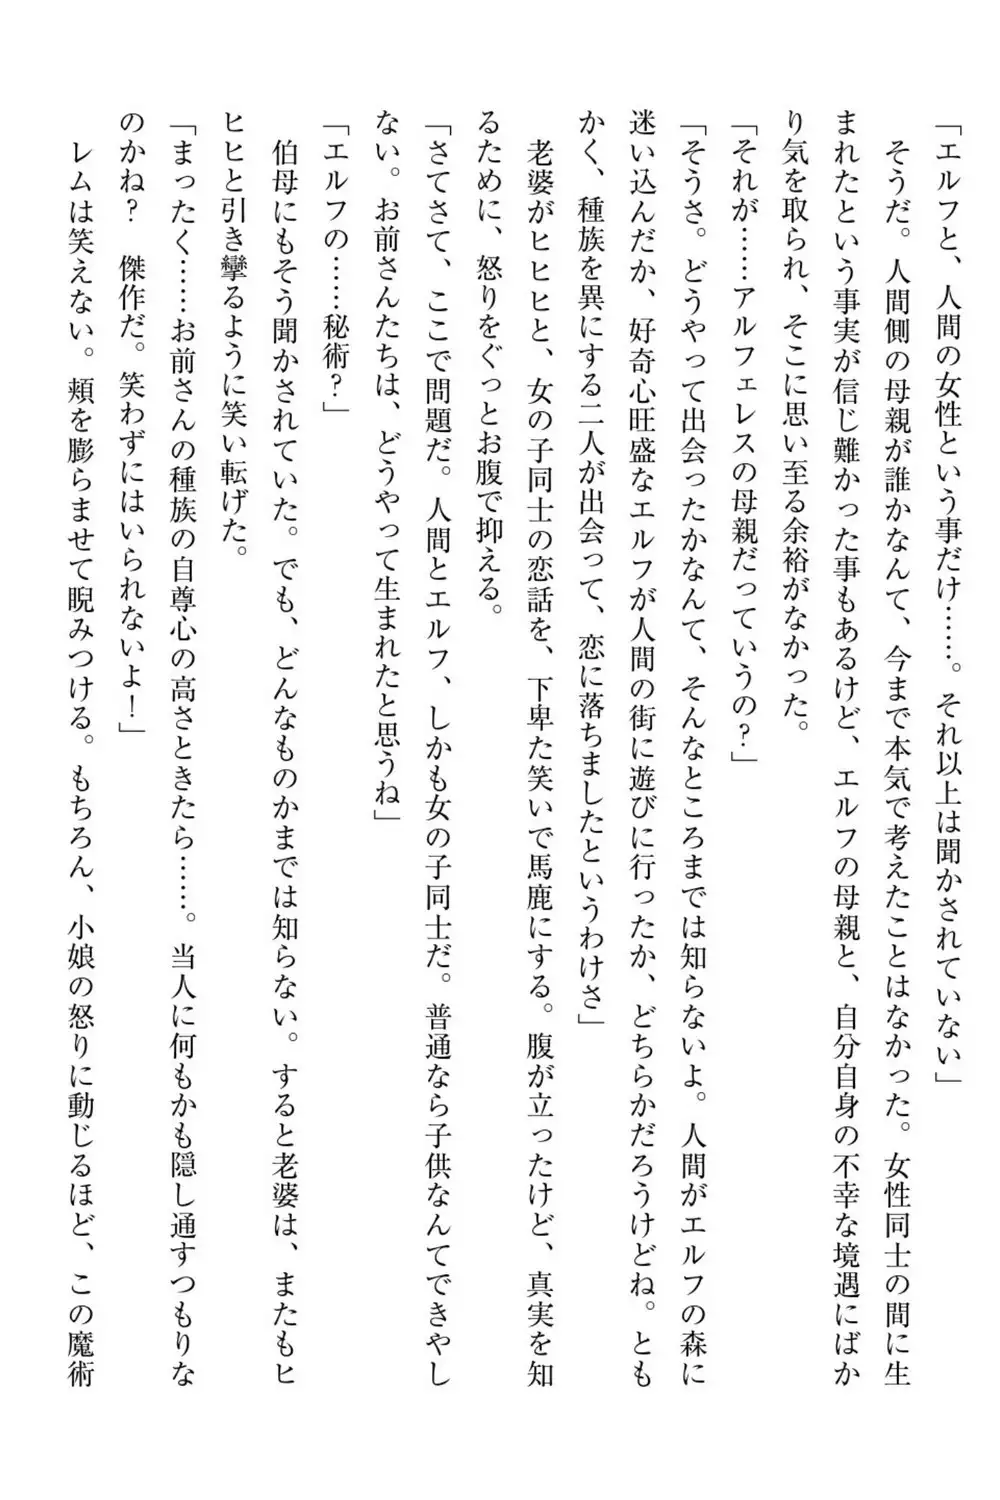 「エルフと、人間の女性という事だけ……。それ以上は聞かされていない」
　そうだ。人間側の母親が誰かなんて、今まで本気で考えたことはなかった。女性同士の間に生
まれたという事実が信じ難かった事もあるけど、エルフの母親と、自分自身の不幸な境遇にばか
り気を取られ、そこに思い至る余裕がなかった。
「それが……アルフェレスの母親だっていうの？」
「そうさ。どうやって出会ったかなんて、そんなところまでは知らないよ。人間がエルフの森に
迷い込んだか、好奇心旺盛なエルフが人間の街に遊びに行ったか、どちらかだろうけどね。とも
かく、種族を異にする二人が出会って、恋に落ちましたというわけさ」
　老婆がヒヒヒと、女の子同士の恋話を、下卑た笑いで馬鹿にする。腹が立ったけど、真実を知
るために、怒りをぐっとお腹で抑える。
「さてさて、ここで問題だ。人間とエルフ、しかも女の子同士だ。普通なら子供なんてできやし
ない。お前さんたちは、どうやって生まれたと思うね」
「エルフの……秘術？」
　伯母にもそう聞かされていた。でも、どんなものかまでは知らない。すると老婆は、またもヒ
ヒヒと引き攣るように笑い転げた。
「まったく……お前さんの種族の自尊心の高さときたら……。当人に何もかも隠し通すつもりな
のかね？　傑作だ。笑わずにはいられないよ！」
　レムは笑えない。頬を膨らませて睨みつける。もちろん、小娘の怒りに動じるほど、この魔術